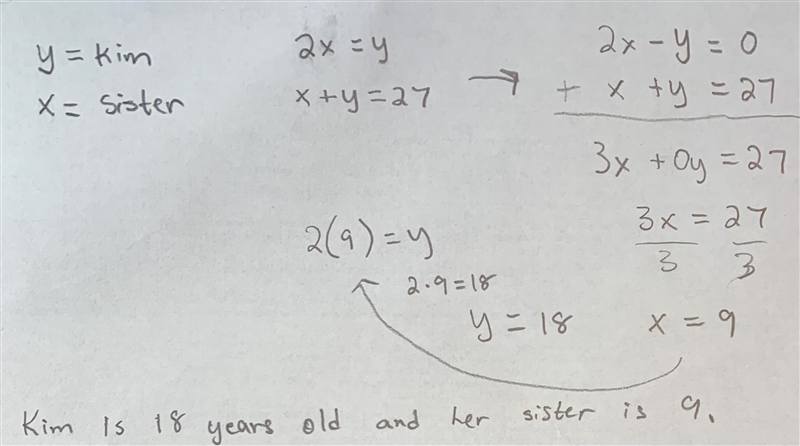 y = Kim
x = Sister
2x = y
x + y = 27
→
2x - y = 0
+ x + y = 27
3x + 0y = 27
3x = 27
3 3
x = 9
2(9) = y
2 · 9 = 18
y = 18
Kim is 18 years old and her sister is 9.